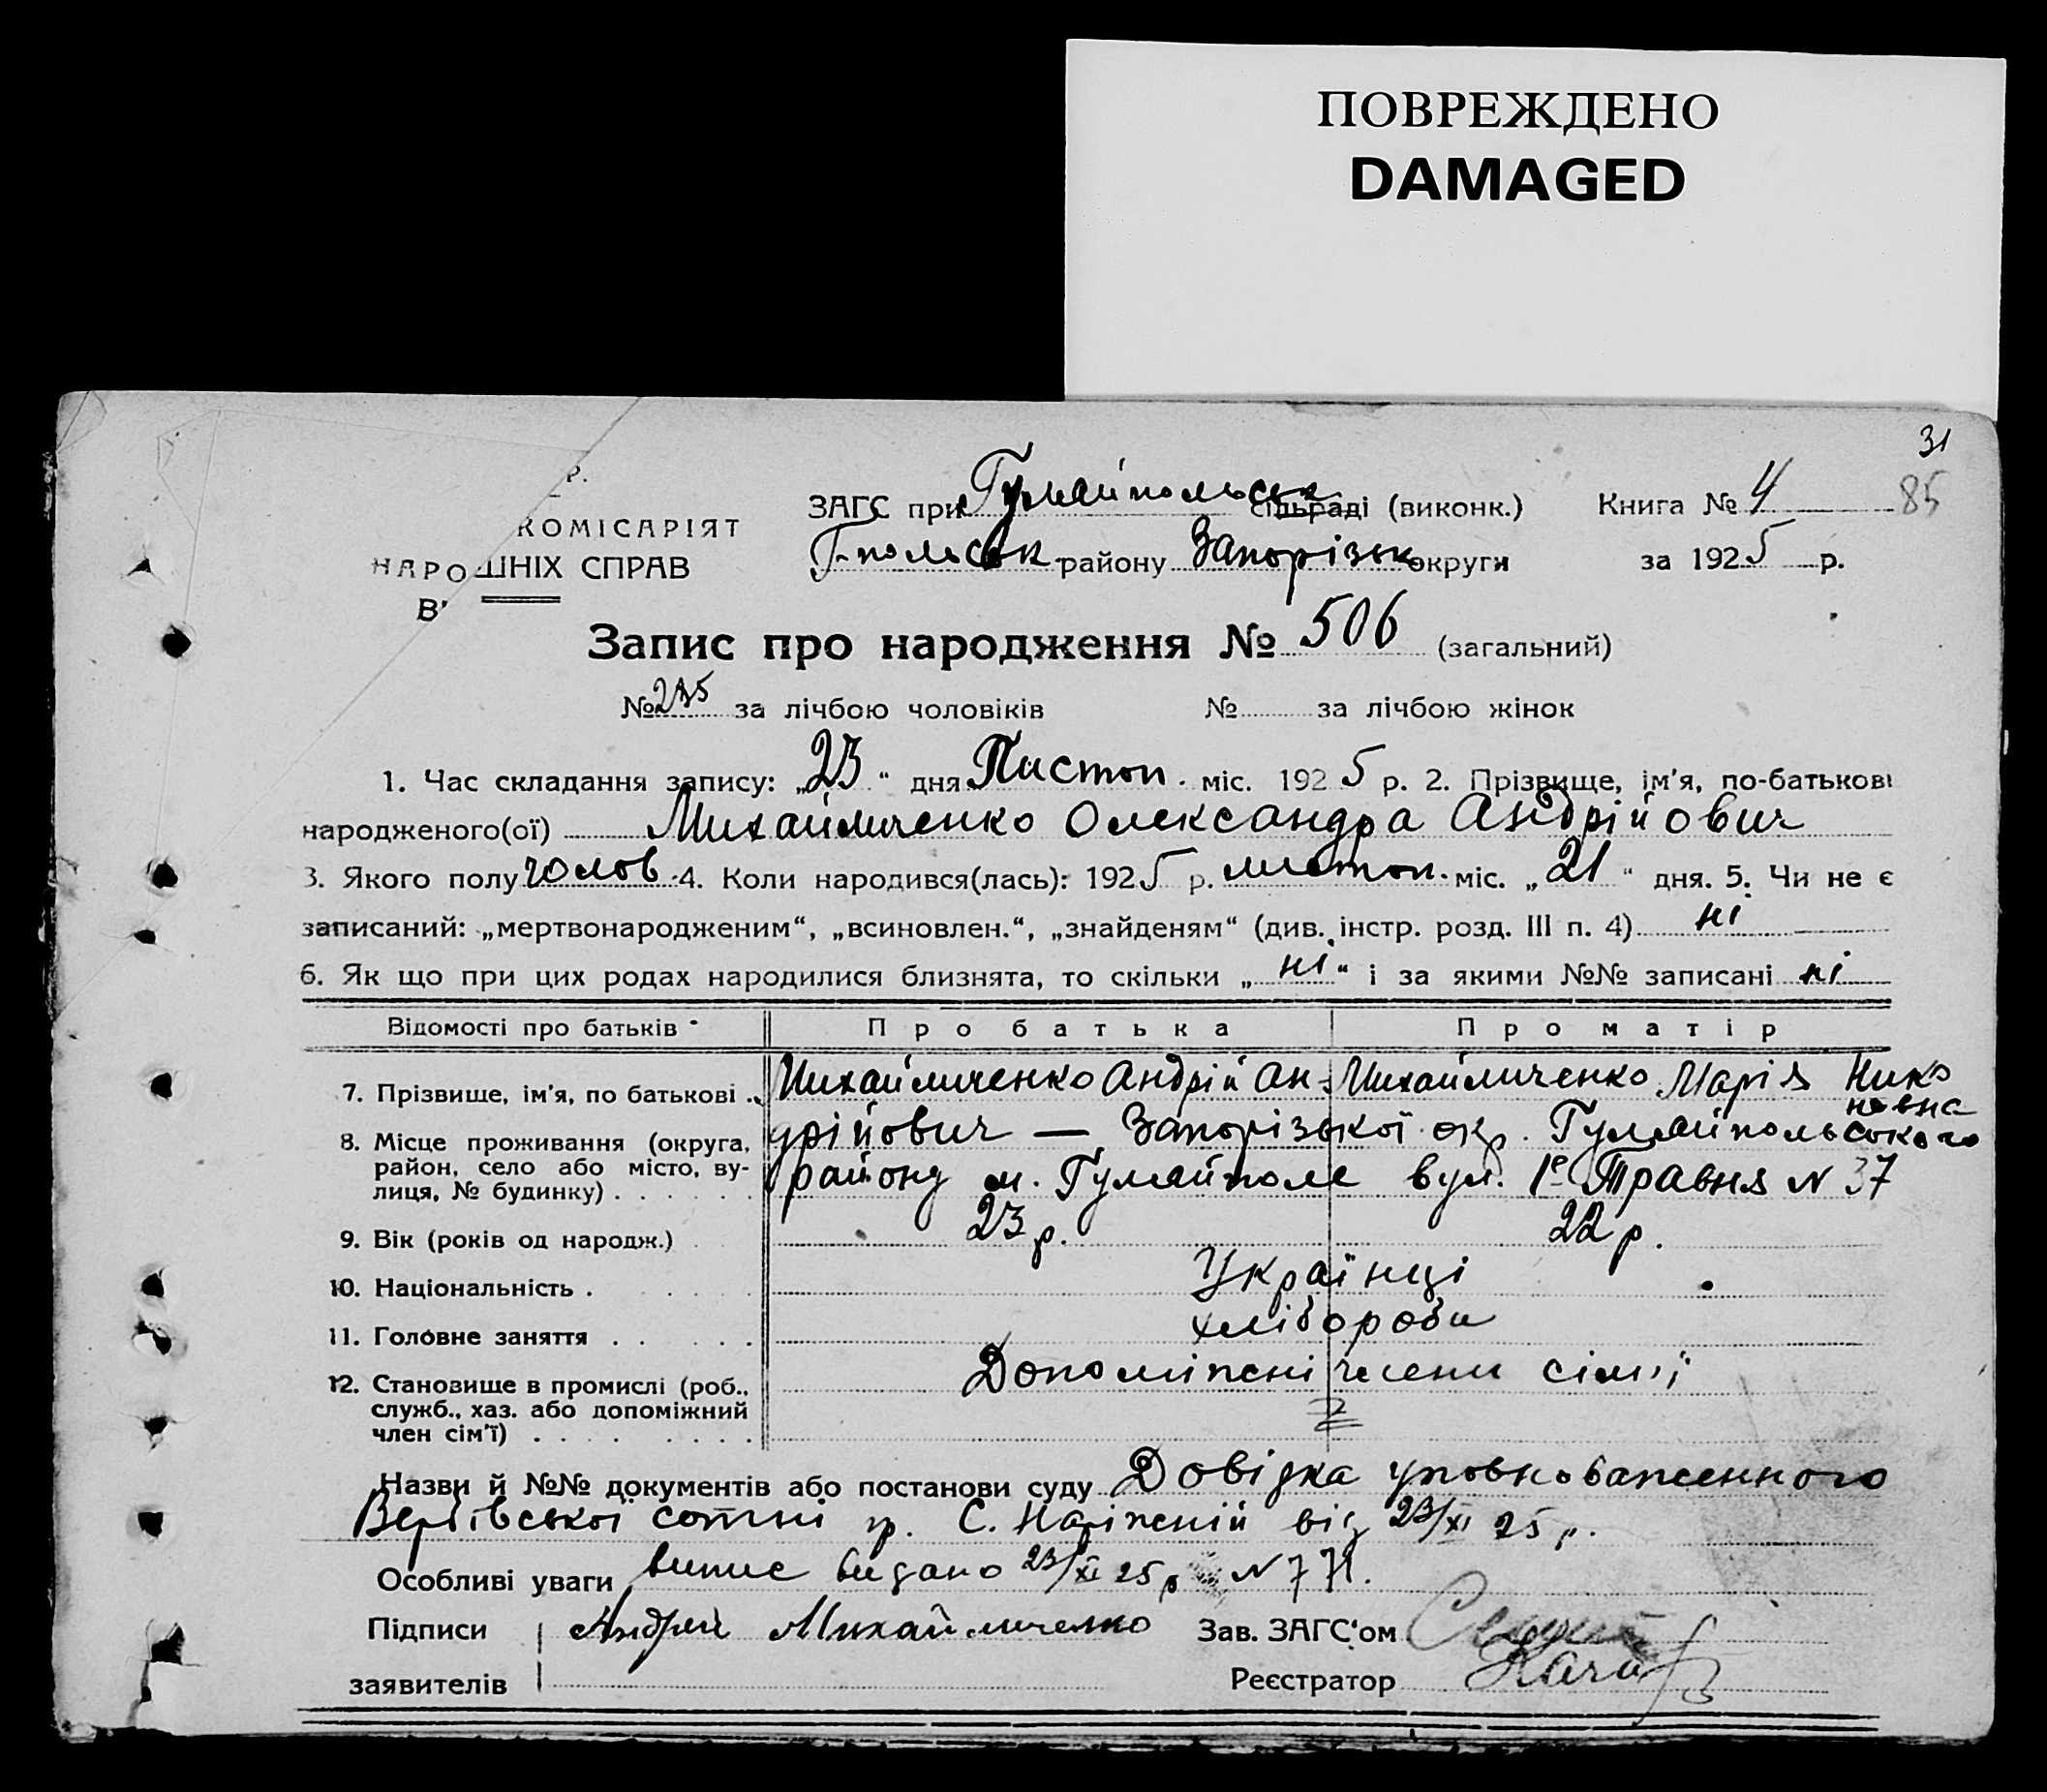 ПОВРЕЖДЕНО
DAMAGED
31
85
Р.
КОМІСАРІЯТ
НАРО ШНІХ СПРАВ
В
ЗАГС при Гуляйпольськ сільраді (виконк.) Книга № 4
Г-польськ району Запорізьк округи за 1925 р.
Запис про народження № 506 (загальний)
№ 235 за лічбою чоловіків № за лічбою жінок
1. Час складання запису: „23“ дня Листоп. міс. 1925 р. 2. Прізвище, ім'я, по-батькові
народженого(ої) Михайличенко Олександра Андрійович
3. Якого полу чолов. 4. Коли народився(лась): 1925 р. листоп. міс. „21“ дня. 5. Чи не є
записаний: „мертвонародженим“, „всиновлен.“, „знайденям“ (див. інстр. розд. III п. 4) ні
6. Як що при цих родах народилися близнята, то скільки „ні“ і за якими №№ записані ні
Відомості про батьків Про батька Про матір
7. Прізвище, ім'я, по батькові . Михайличенко Андрій Ан- Михайличенко Марія Нико
новна
8. Місце проживання (округа, дрійович — Запорізької окр. Гуляйпольського
район, село або місто, ву- району м. Гуляйполе вул. 1е Травня N 37
лиця, № будинку) . . . . . .
9. Вік (років од народж.) 23 р. 22 р.
10. Національність . Українці
11. Головне заняття . . хлібороби
12. Становище в промислі (роб., Допоміжні члени сім'ї
служб., хаз. або допоміжний
член сім'ї) . . . . . . . .
Назви й №№ документів або постанови суду Довідка уповноваженного
Вербівської сотні гр. С. Наріжній від 23/XI 25 р.
Особливі уваги випис видано 23/XI 25 р N 771.
Підписи Андрій Михайличенко Зав. ЗАГС'ом
заявителів Реєстратор